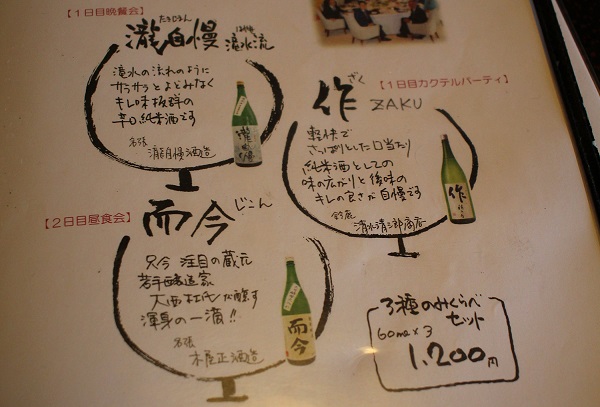 【1日目晩餐会】
たきじまん
瀧自慢
はやせ
滝水流
滝水の流れのように
サラサラとよどみなく
キレ味抜群の
辛口純米酒です
名張
瀧自慢酒造
【1日目カクテルパーティ】
ざく
作 ZAKU
軽快で
さっぱりとした口当たり
純米酒としての
味の広がりと後味の
キレの良さが自慢です
鈴鹿
清水清三郎商店
作
【2日目昼食会】
而今
じこん
只今注目の蔵元
若手醸造家
大西
が醸す
渾身の一滴!!
名張
木屋正酒造
而今
3種のみくらべ
セット
60ml×3
1,200円